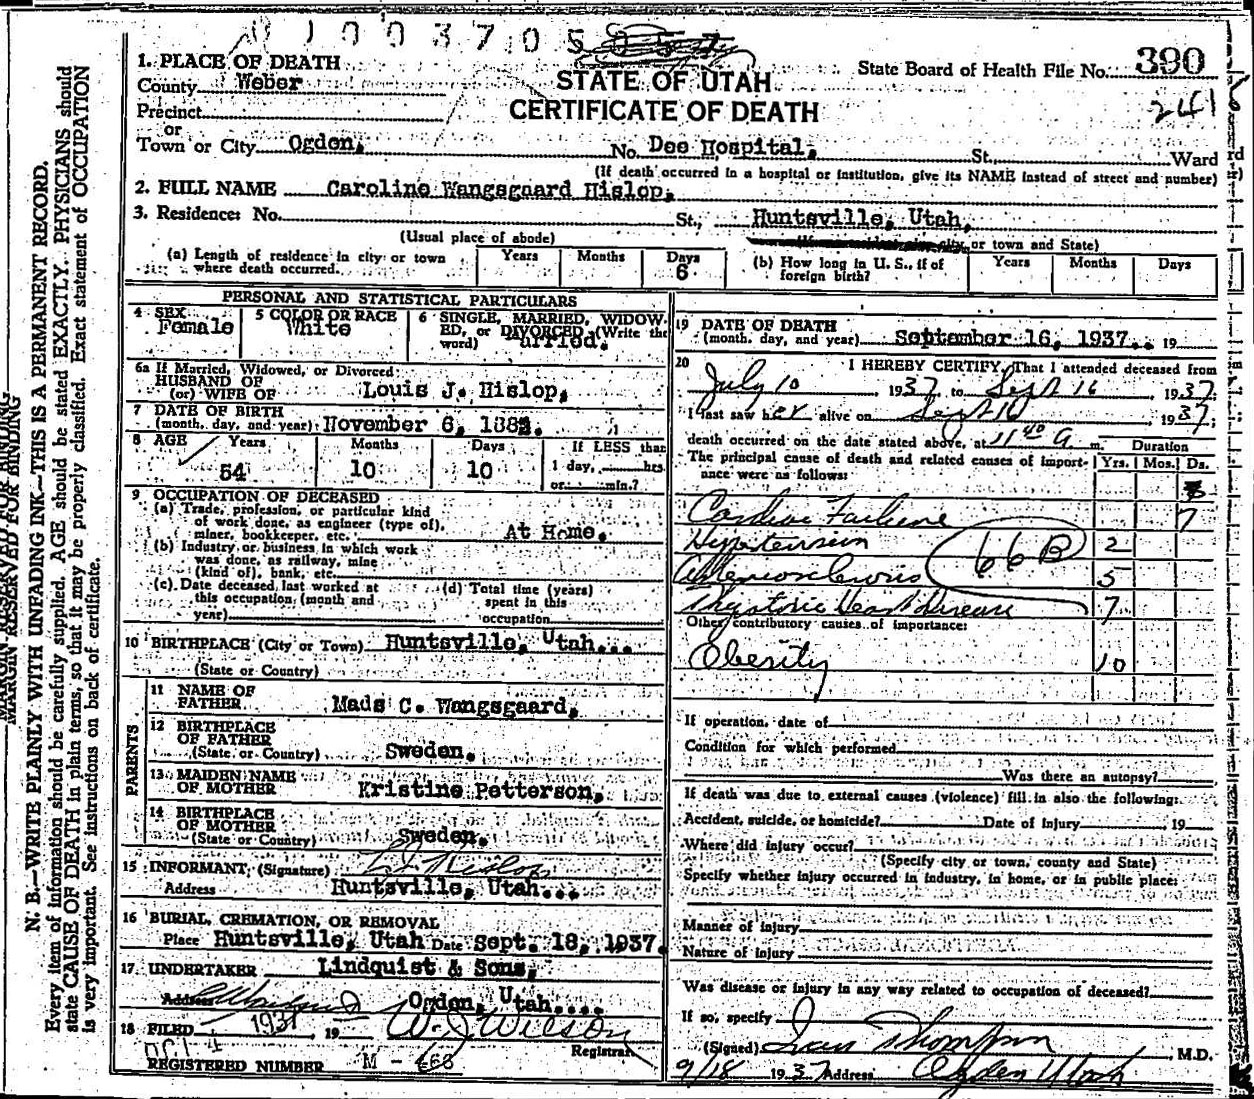 1 0 0 3 7 0 5 0 5 7
1. PLACE OF DEATH
County Weber
Precinct
or
Town or City Ogden,
STATE OF UTAH
CERTIFICATE OF DEATH
State Board of Health File No. 390
2416
No. Dee Hospital, St., Ward
(If death occurred in a hospital or institution, give its NAME instead of street and number)
2. FULL NAME Caroline Wangsgaard Hislop,
3. Residence: No. St., Huntsville, Utah,
(Usual place of abode) city or town and State)
(a) Length of residence in city or town where death occurred. Years Months Days 6
(b) How long in U. S., if of foreign birth? Years Months Days
PERSONAL AND STATISTICAL PARTICULARS
4 SEX Female
5 COLOR OR RACE White
6 SINGLE, MARRIED, WIDOWED, or DIVORCED (Write the word) arried.
6a If Married, Widowed, or Divorced
HUSBAND OF
(or) WIFE OF Louis J. Hislop,
7 DATE OF BIRTH
(month, day, and year) November 6, 188
8 AGE Years 54 Months 10 Days 10 If LESS than 1 day, hrs. or min.?
9 OCCUPATION OF DECEASED
(a) Trade, profession, or particular kind
of work done, as engineer (type of),
miner, bookkeeper, etc. At Home.
(b) Industry or business in which work
was done, as railway, mine
(kind of), bank, etc.
(c) Date deceased last worked at
this occupation (month and
year)
(d) Total time (years)
spent in this
occupation
10 BIRTHPLACE (City or Town) Huntsville, Utah...
(State or Country)
PARENTS
11 NAME OF
FATHER Mads C. Wangsgaard,
12 BIRTHPLACE
OF FATHER
(State or Country) Sweden.
13 MAIDEN NAME
OF MOTHER Kristine Petterson,
14 BIRTHPLACE
OF MOTHER
(State or Country) Sweden.
15 INFORMANT, (Signature) L J Hislop
Address Huntsville, Utah...
16 BURIAL, CREMATION, OR REMOVAL
Place Huntsville, Utah Date Sept. 18, 1937.
17 UNDERTAKER Lindquist & Sons,
Address Ogden, Utah....
18 FILED OCT 4 1937, 19 W. J. Wilson
Registrar
REGISTERED NUMBER M - 466
19 DATE OF DEATH
(month, day, and year) September 16, 1937.. 19
20 I HEREBY CERTIFY, That I attended deceased from
July 10, 1937, to Sept 16, 1937;
I last saw her alive on Sept 16, 1937;
death occurred on the date stated above, at 11 40 A m. Duration
The principal cause of death and related causes of importance were as follows: Yrs. Mos. Ds.
Cardiac Failure 7
Hypertension 2
66B
Arteriosclerosis 5
Heart Disease 7
Other contributory causes of importance:
Obesity 10
If operation, date of
Condition for which performed
Was there an autopsy?
If death was due to external causes (violence) fill in also the following:
Accident, suicide, or homicide? Date of injury , 19
Where did injury occur?
(Specify city or town, county and State)
Specify whether injury occurred in industry, in home, or in public place:
Manner of injury
Nature of injury
Was disease or injury in any way related to occupation of deceased?
If so, specify
(Signed) Ivan Thompson, M.D.
9/18 1937 Address Ogden Utah
MARGIN RESERVED FOR BINDING
N. B.—WRITE PLAINLY WITH UNFADING INK—THIS IS A PERMANENT RECORD.
Every item of information should be carefully supplied. AGE should be stated EXACTLY. PHYSICIANS should
state CAUSE OF DEATH in plain terms, so that it may be properly classified. Exact statement of OCCUPATION
is very important. See instructions on back of certificate.